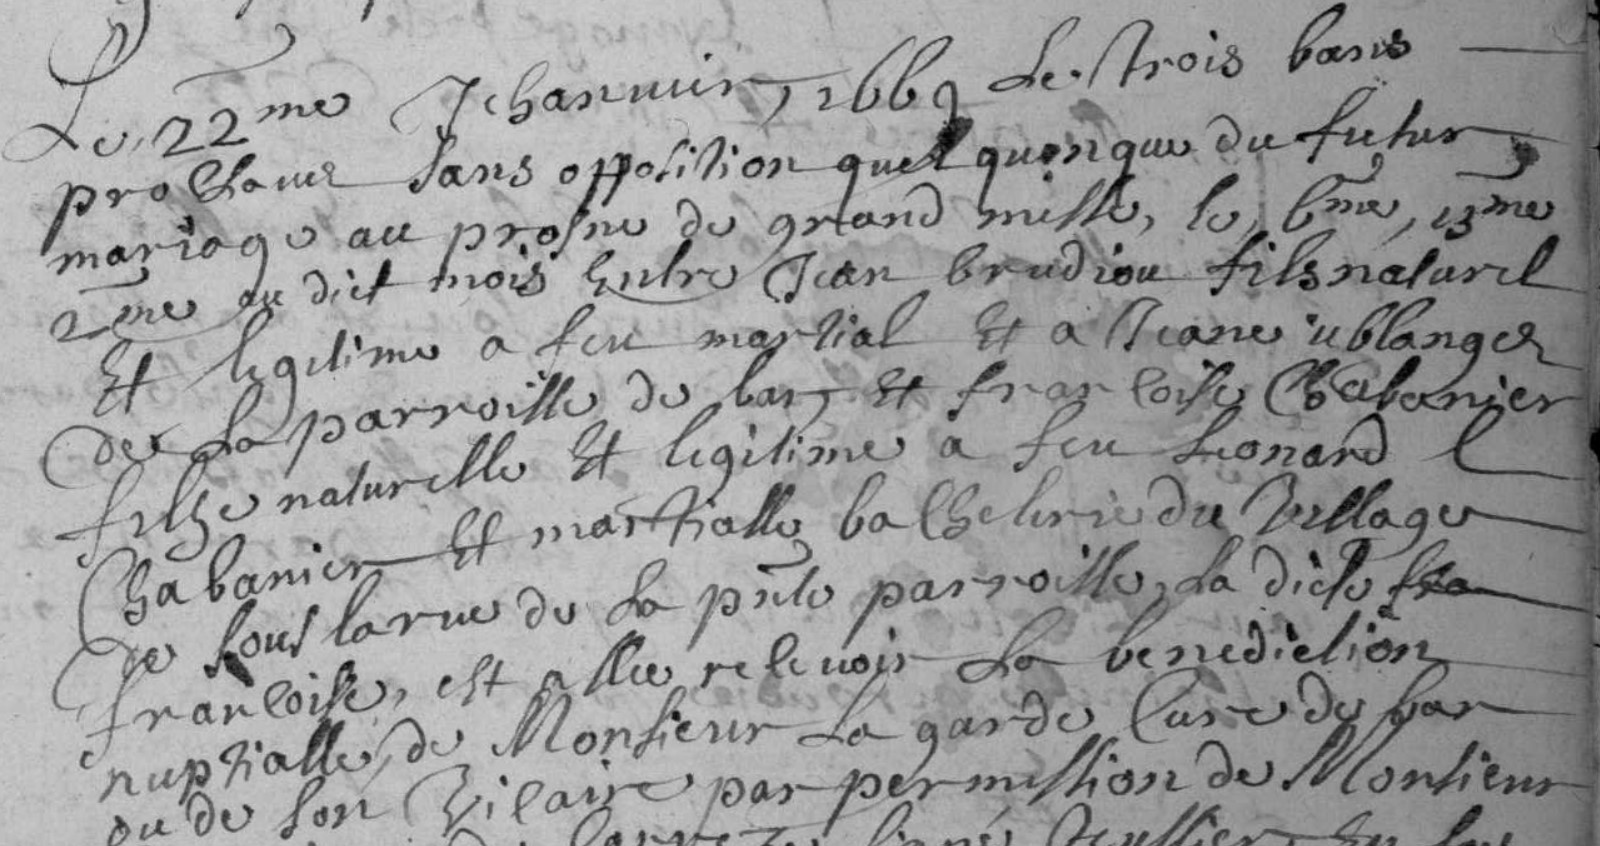 Le 22me Jehanvier, 1669 Les trois bans
proclamez sans opposition quelquonque du futur
mariage au prosne de grand messe, le 6me, 13me
2me au dict mois Entre Jean brudiou fils naturel
Et legitime a feu martial Et a Jeane
de La parroisse de bar, Et francoise Chabanier
filhe naturelle Et legitime a feu Leonard
Chabanier Et martialle bachelerie du Village
de souslarue de La pnte parroisse, La dicte
francoise, est allee recevoir La benediction
nuptialle, de Monsieur La garde Curé de bar
ou de son Vicaire par permission de Monsieur